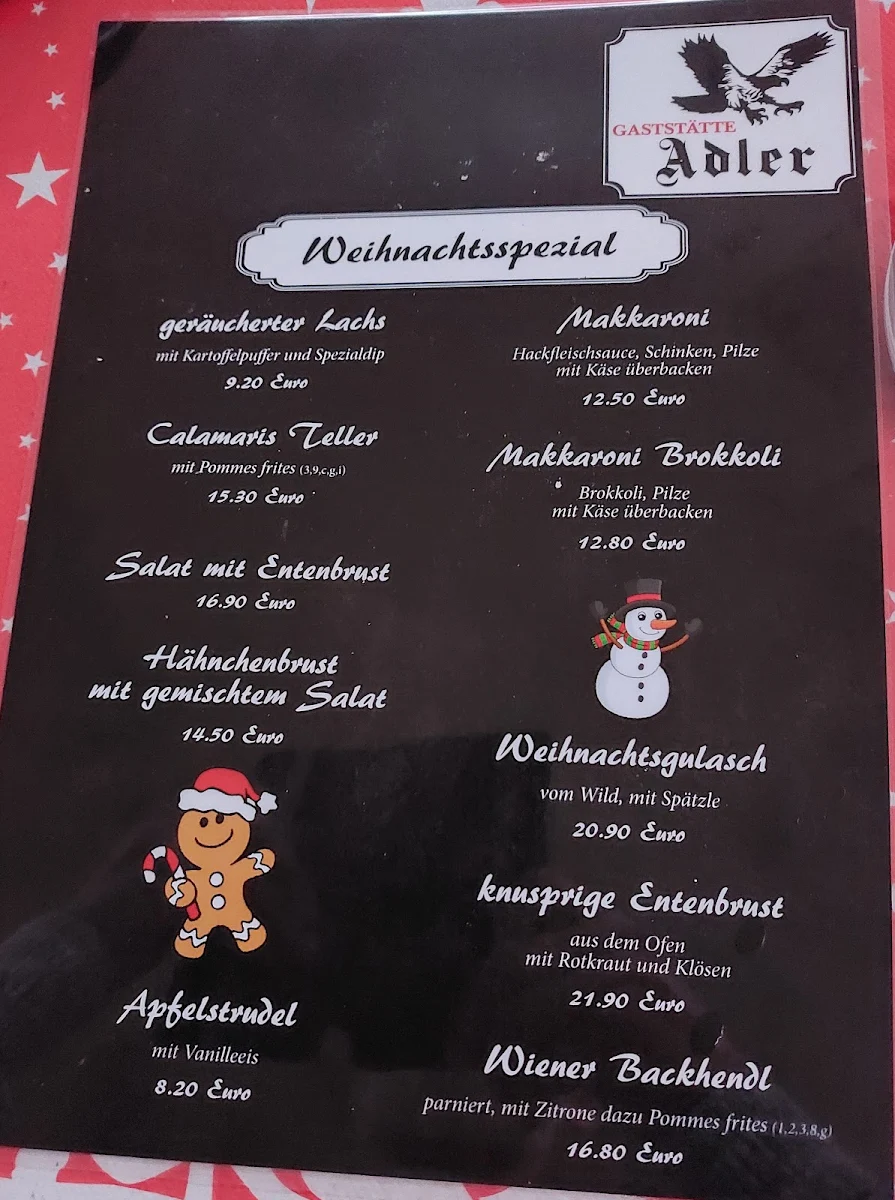 GASTSTÄTTE
Adler
Weihnachtsspezial
geräucherter Lachs
mit Kartoffelpuffer und Spezialdip
9.20 Euro
Calamaris Teller
mit Pommes frites (3,9,c,g,i)
15.30 Euro
Salat mit Entenbrust
16.90 Euro
Hähnchenbrust
mit gemischtem Salat
14.50 Euro
Apfelstrudel
mit Vanilleeis
8.20 Euro
Makkaroni
Hackfleischsauce, Schinken, Pilze
mit Käse überbacken
12.50 Euro
Makkaroni Brokkoli
Brokkoli, Pilze
mit Käse überbacken
12.80 Euro
Weihnachtsgulasch
vom Wild, mit Spätzle
20.90 Euro
knusprige Entenbrust
aus dem Ofen
mit Rotkraut und Klösen
21.90 Euro
Wiener Backhendl
parniert, mit Zitrone dazu Pommes frites (1,2,3,8,g)
16.80 Euro